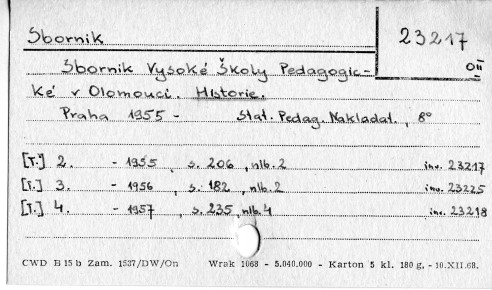 Sbornik
23217
OII
Sbornik Vysoké Školy Pedagogic-
ké v Olomouci. Historie.
Praha 1955 - Stat. Pedag. Nakladat., 8°
[T.] 2. - 1955, s. 206, nlb. 2 inv. 23217
[T.] 3. - 1956, s. 182, nlb. 2 inv. 23225
[T.] 4. - 1957, s. 235, nlb. 4 inv. 23218
CWD B 15 b Zam. 1537/DW/On Wrak 1068 - 5.040.000 - Karton 5 kl. 180 g, - 10.XII.68.